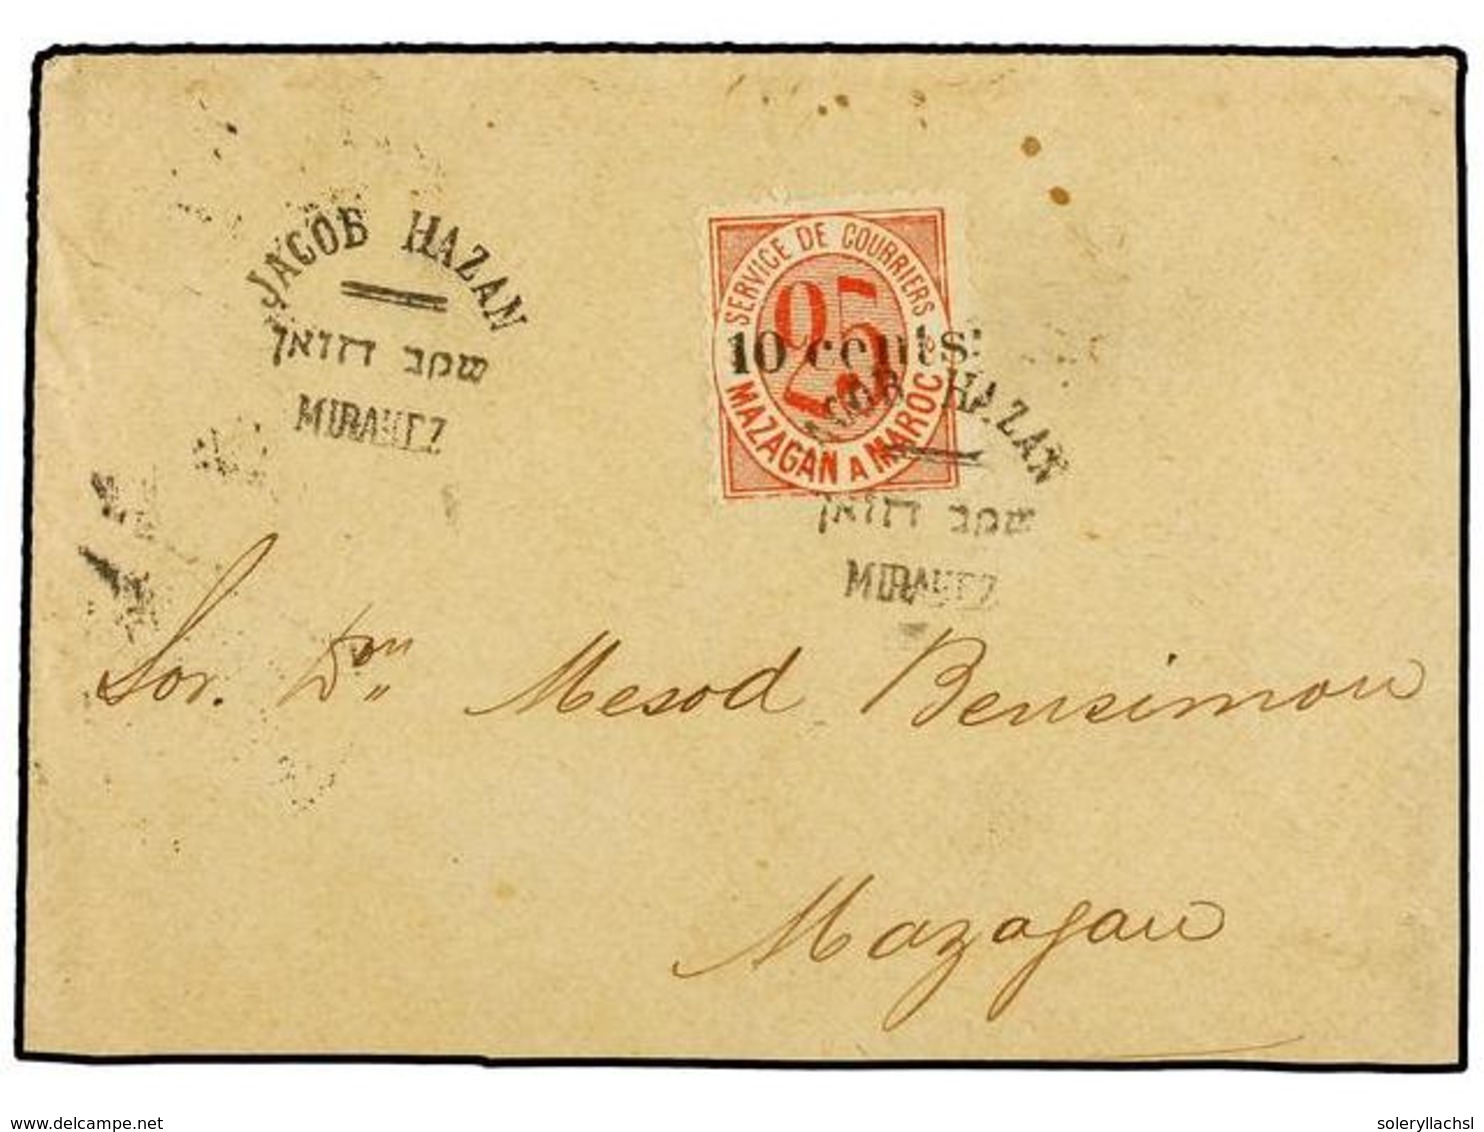 JACOB HAZAN
יעקב חזאן
MIRAKEZ
SERVICE DE COURRIERS
25
10 cents
MAZAGAN A MAROC
HAZAN
יעקב חזאן
MIRAKEZ
Sor. Dn Mesod Bensimon
Mazagan
www.delcampe.net
soleryllachsl